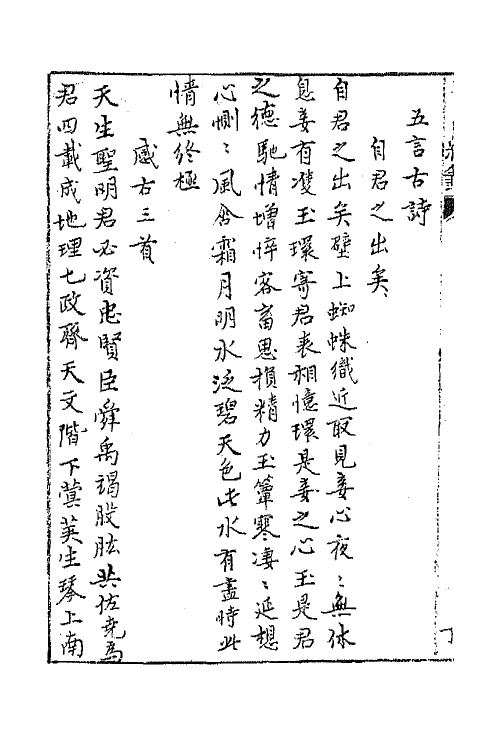 五言古詩
自君之出矣
自君之出矣壁上蜘蛛織近取見妾心夜〻無休
息妾有雙玉環寄君表相憶環是妾之心玉是君
之德馳情增悴容蓄思損精力玉簟寒淒〻延想
心惻〻風含霜月明水泛碧天色此水有盡時此
情無終極
感古三首
天生聖明君必資忠賢臣舜禹竭股肱共佐堯為
君四載成地理七政齊天文階下蓂莢生琴上南